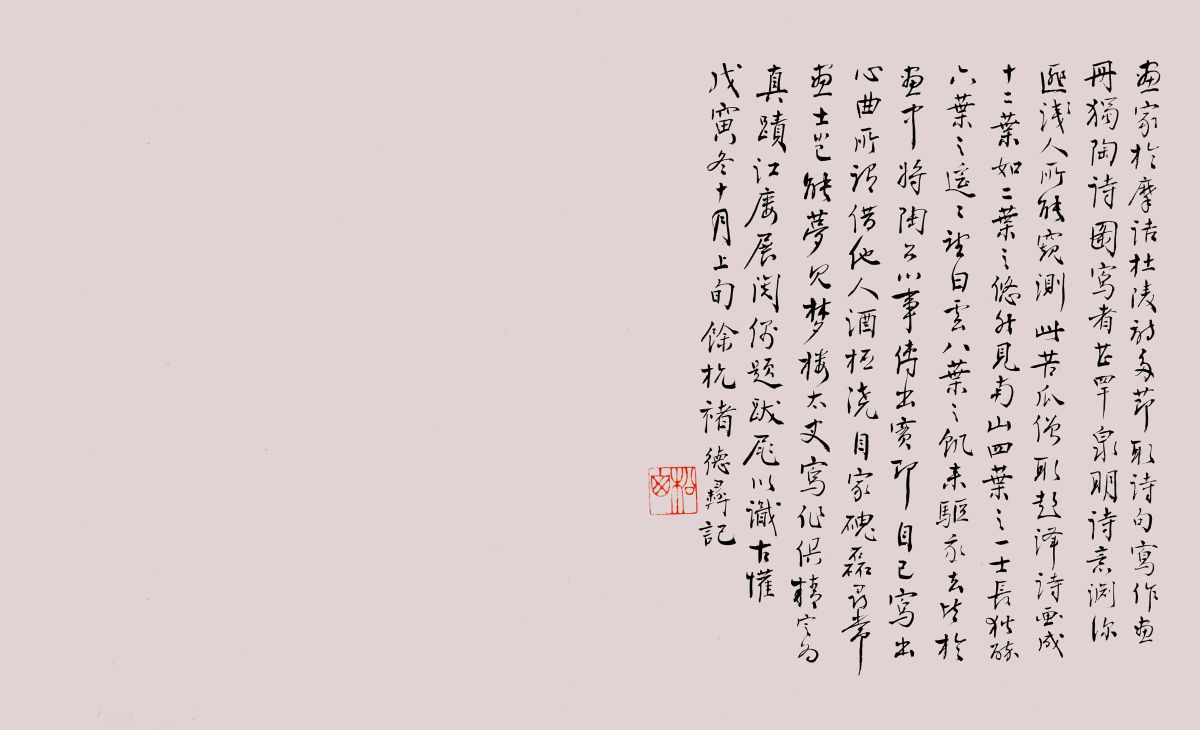 画家於摩诘杜陵诗多节取诗句写作画
册独陶诗图写者甚罕泉明诗意渊深
匪浅人所能窥测此苦瓜僧取彭泽诗画成
十二叶如二叶之悠然见南山四叶之一士长独醉
六叶之遥遥望白云八叶之饥来驱我去皆於
画中将陶公心事传出实即自己写出
心曲所谓借他人酒杯浇自家磈磊寻常
画士岂能梦见梦楼太史写作俱精定为
真蹟江楼展阅偶题跋尾以识古懽
戊寅冬十月上旬馀杭褚德彝记
松窗